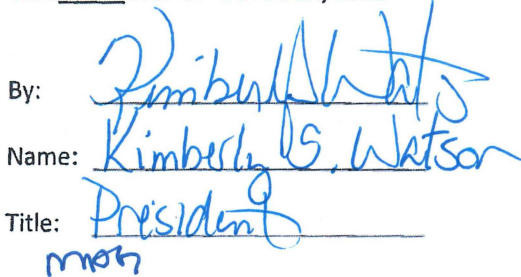 By: Kimberly S Watson
Name: Kimberly S. Watson
Title: President